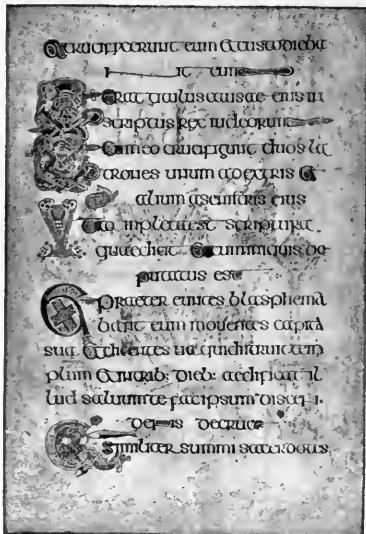 et crucifixerunt eum et custodieba
nt eum
Et erat titulus causae eius in
scriptus rex iudeorum
Et cum eo crucifigunt duos la
trones unum a dextris et
alium a sinistris eius
Et impleta est scriptura
quae dicit et cum iniquis de
putatus est
Et praetereuntes blasphema
bant eum mouentes capita
sua et dicentes ua qui distruit tem
plum et in trib: dieb: aedificat il
lud saluum te fac ipsum
de cruce
Similiter summi sacerdotes